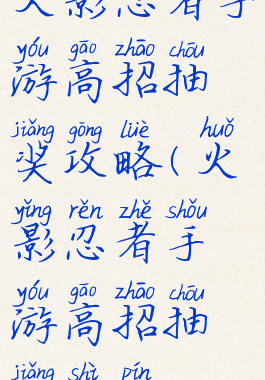 火影忍者手
yóu gāo zhāo chōu
游高招抽
jiǎng gōng lüè huǒ
奖攻略(火
yǐng rěn zhě shǒu
影忍者手
yóu gāo zhāo chōu
游高招抽
jiǎng shì pín